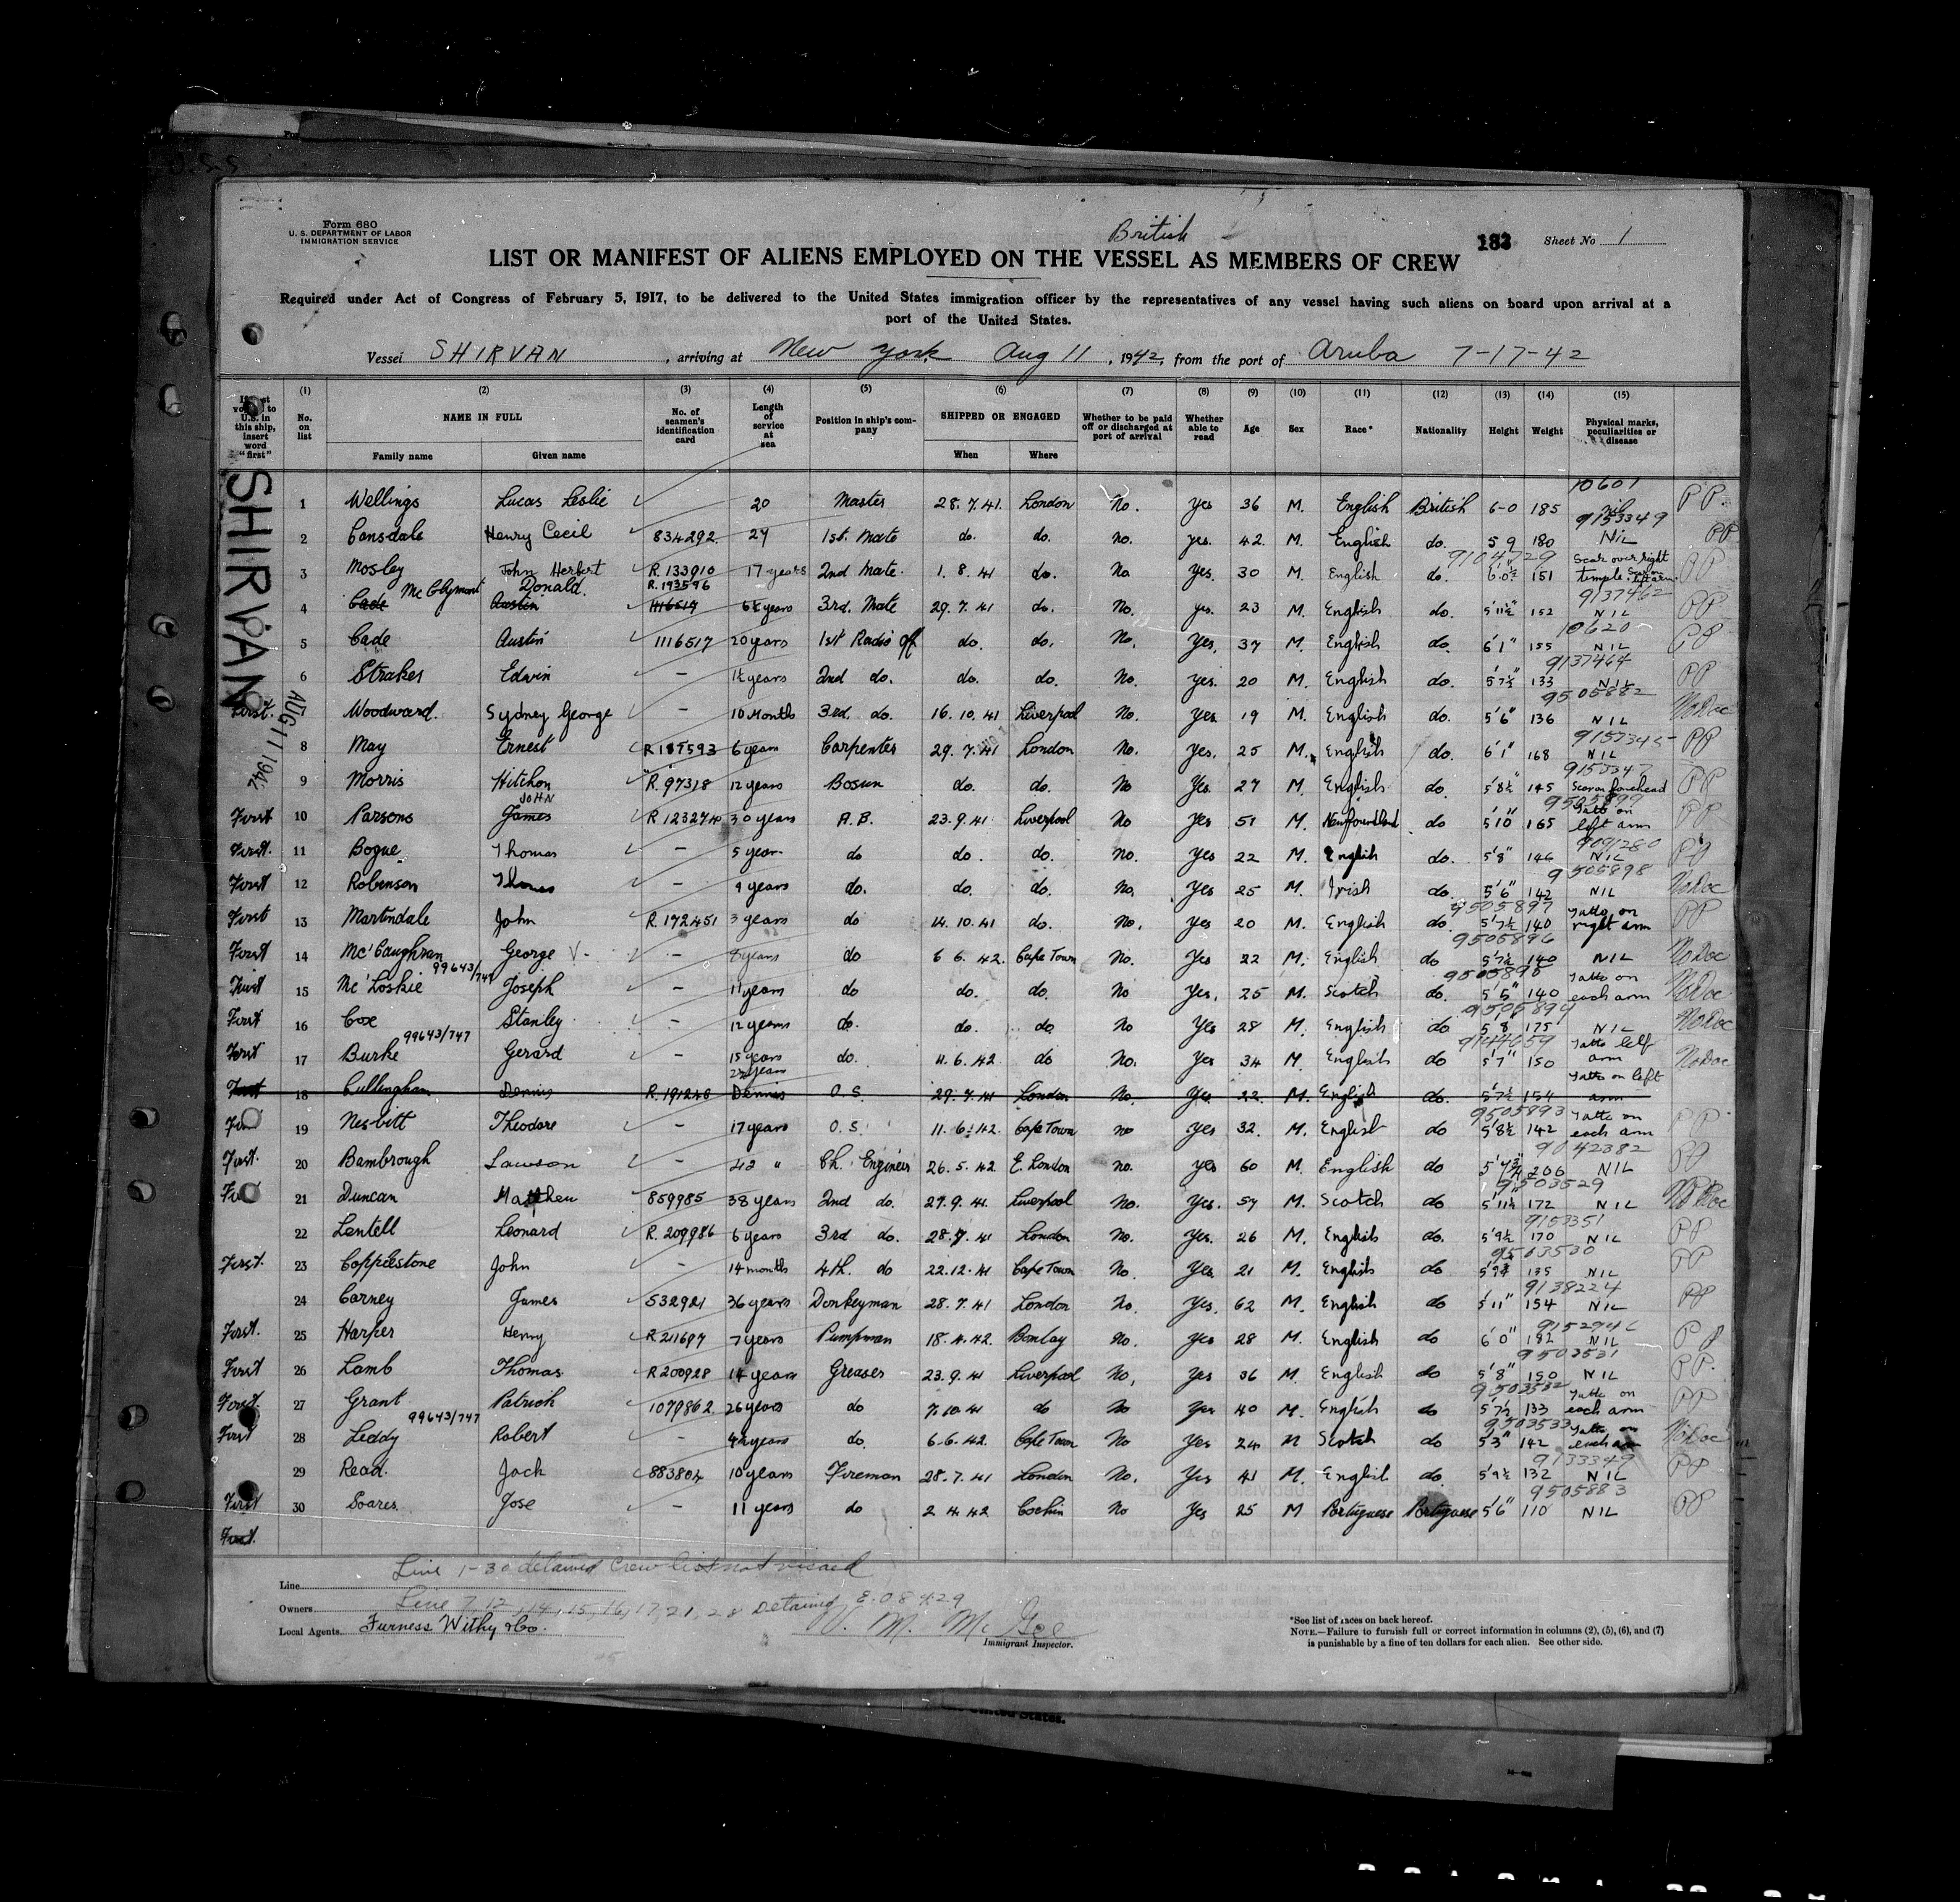 Form 680
U. S. DEPARTMENT OF LABOR
IMMIGRATION SERVICE
British
Sheet No 1
LIST OR MANIFEST OF ALIENS EMPLOYED ON THE VESSEL AS MEMBERS OF CREW
Required under Act of Congress of February 5, 1917, to be delivered to the United States immigration officer by the representatives of any vessel having such aliens on board upon arrival at a
port of the United States.
Vessel SHIRVAN, arriving at New York Aug 11, 1942, from the port of Aruba 7-17-42
(1) (2) (3) (4) (5) (6) (7) (8) (9) (10) (11) (12) (13) (14) (15)
No. on list NAME IN FULL Family name Given name No. of seamen's identification card Length of service at sea Position in ship's company SHIPPED OR ENGAGED When Where Whether to be paid off or discharged at port of arrival Whether able to read Age Sex Race* Nationality Height Weight Physical marks, peculiarities or disease
SHIRVAN
AUG 11 1942
10601
1 Wellings Lucas Leslie 20 Master 28.7.41. London No. Yes 36 M. English British 6-0 185 nil PP.
9153349
2 Consdale Henry Cecil 834292 27 1st. Mate do. do. no. yes. 42. M. English do. 5 9 180 NIL PP
9104729
3 Mosley John Herbert R.133910 17 years 2nd Mate. 1.8.41 do. No Yes. 30 M. English do. 6'0½ 151 Scar over right temple. PP
McClymont Donald. R.193596
9137462
4 Cade Austin 1116517 6½ years 3rd. Mate 29.7.41 do. No. yes. 23 M. English do. 5'11½" 152 NIL PP
10620
5 Cade Austin 1116517 20 years 1st Radio off do. do. No. Yes. 37 M. English do. 6'1" 155 NIL PP
9137464
6 Straker Edwin – 1½ years 2nd do. do. do. No. Yes. 20 M. English do. 5'7½ 133 NIL PP
9505882
First. Woodward. Sydney George – 10 Months 3rd. do. 16.10.41 Liverpool No. Yes 19 M. English do. 5'6" 136 NIL No Doc
9157345
8 May Ernest 6 years Carpenter 29.7.41 London No. Yes. 25 M. English do. 6'1" 168 NIL PP
9153347
9 Morris Hitchon R.97318 12 years Bosun do. do. No Yes. 27 M. English do. 5'8½" 145 Scar on forehead PP
JOHN
10 First Parsons James R123274 30 years A.B. 23.9.41 Liverpool No Yes 51 M. Newfoundland do 5'10" 165 Tatto on left arm PP
9091280
First. 11 Bogue Thomas – 5 year do do. do. No. Yes 22 M. English do. 5'8" 146 NIL PP
9505898
First 12 Robenson Thomas – 9 years do. do. do. No. Yes 25 M. Irish do. 5'6" 142 NIL No Doc
9505897
First 13 Martindale John R.172451 3 years do 14.10.41 do. No. Yes 20 M. English do. 5'7½ 140 Tatto on right arm PP
9505896
First 14 Mc'Caughran George V – 8 years do 6 6.42. Cape Town No. Yes 22 M. English do 140 NIL No Doc
99643/747
15 Mc'Loskie Joseph 11 years do do. do. No Yes. 25 M. Scotch do. 5'5" 140 Tatto on each arm No Doc
First 16 Cox Stanley – 12 years do. do. do No Yes 28 M. English do 5'8" 175 NIL No Doc
99643/747
9144659
First 17 Burke Gerard – 15 years do. 11.6.42 do No. Yes 34 M. English do 5'7" 150 Tatto left arm No Doc
First 18 Cullingham Dennis R.191248 O.S. 29.7.41 London No. Yes 22. M. English do. 5'7½ 154 Tatto on left arm
9505893
19 Nesbitt Theodore – 17 years O.S. 11.6.42. Cape Town no Yes 32. M. English do 5'8½ 142 Tatto on each arm PP
9042382
First. 20 Bambrough Lawson – 42 " Ch. Engineer 26.5.42 E. London no. yes 60 M. English do 206 NIL PP
9503529
21 Duncan Matthew 859985 38 years 2nd do. 27.9.41. Liverpool No. Yes. 57 M. Scotch do 5'11½ 172 NIL No Doc
9153351
22 Lentell Leonard R.209986 6 years 3rd do. 28.7.41 London No. Yes. 26 M. English do. 5'9½ 170 NIL PP
9503530
First. 23 Copplestone John – 14 months 4th. do 22.12.41 Cape Town No. Yes 21 M. English do 135 NIL PP
9138224
24 Carney James 532921 36 years Donkeyman 28.7.41 London No. Yes. 62 M. English do 5'11" 154 NIL PP
First. 25 Harper Henry R211697 7 years Pumpman 18.4.42. Bombay no. Yes 28 M. English do 6'0" 182 NIL PP
9503531
First 26 Lamb Thomas R200928 14 years Greaser 23.9.41 Liverpool No, Yes 36 M. English do 5'8" 150 NIL PP.
9503532
First. 27 Grant Patrick 1079862 26 years do 7.10.41 do No Yes 40 M. English do 5'7½ 133 Tatto on each arm PP
99643/747
9503533
First 28 Leddy Robert – do. 6.6.42. Cape Town No Yes 24 M Scotch do 5'3" 142 Tatto on each arm No Doc
9133349
29 Read. Jack 883804 10 years Fireman 28.7.41 London No. Yes 41 M. English do 5'9½ 132 NIL PP
9505883
First 30 Soares Jose – 11 years do 2 4.42 Cochin No Yes 25 M Portuguese Portuguese 5'6" 110 NIL PP
First.
Line 1-30 detained crew list not visaed
Line
Owners Line 7, 12, 14, 15, 16, 17, 21, 28 Detained E.08429
Local Agents Furness Withy & Co. V. M. McGee
Immigrant Inspector.
*See list of races on back hereof.
NOTE.—Failure to furnish full or correct information in columns (2), (5), (6), and (7)
is punishable by a fine of ten dollars for each alien. See other side.